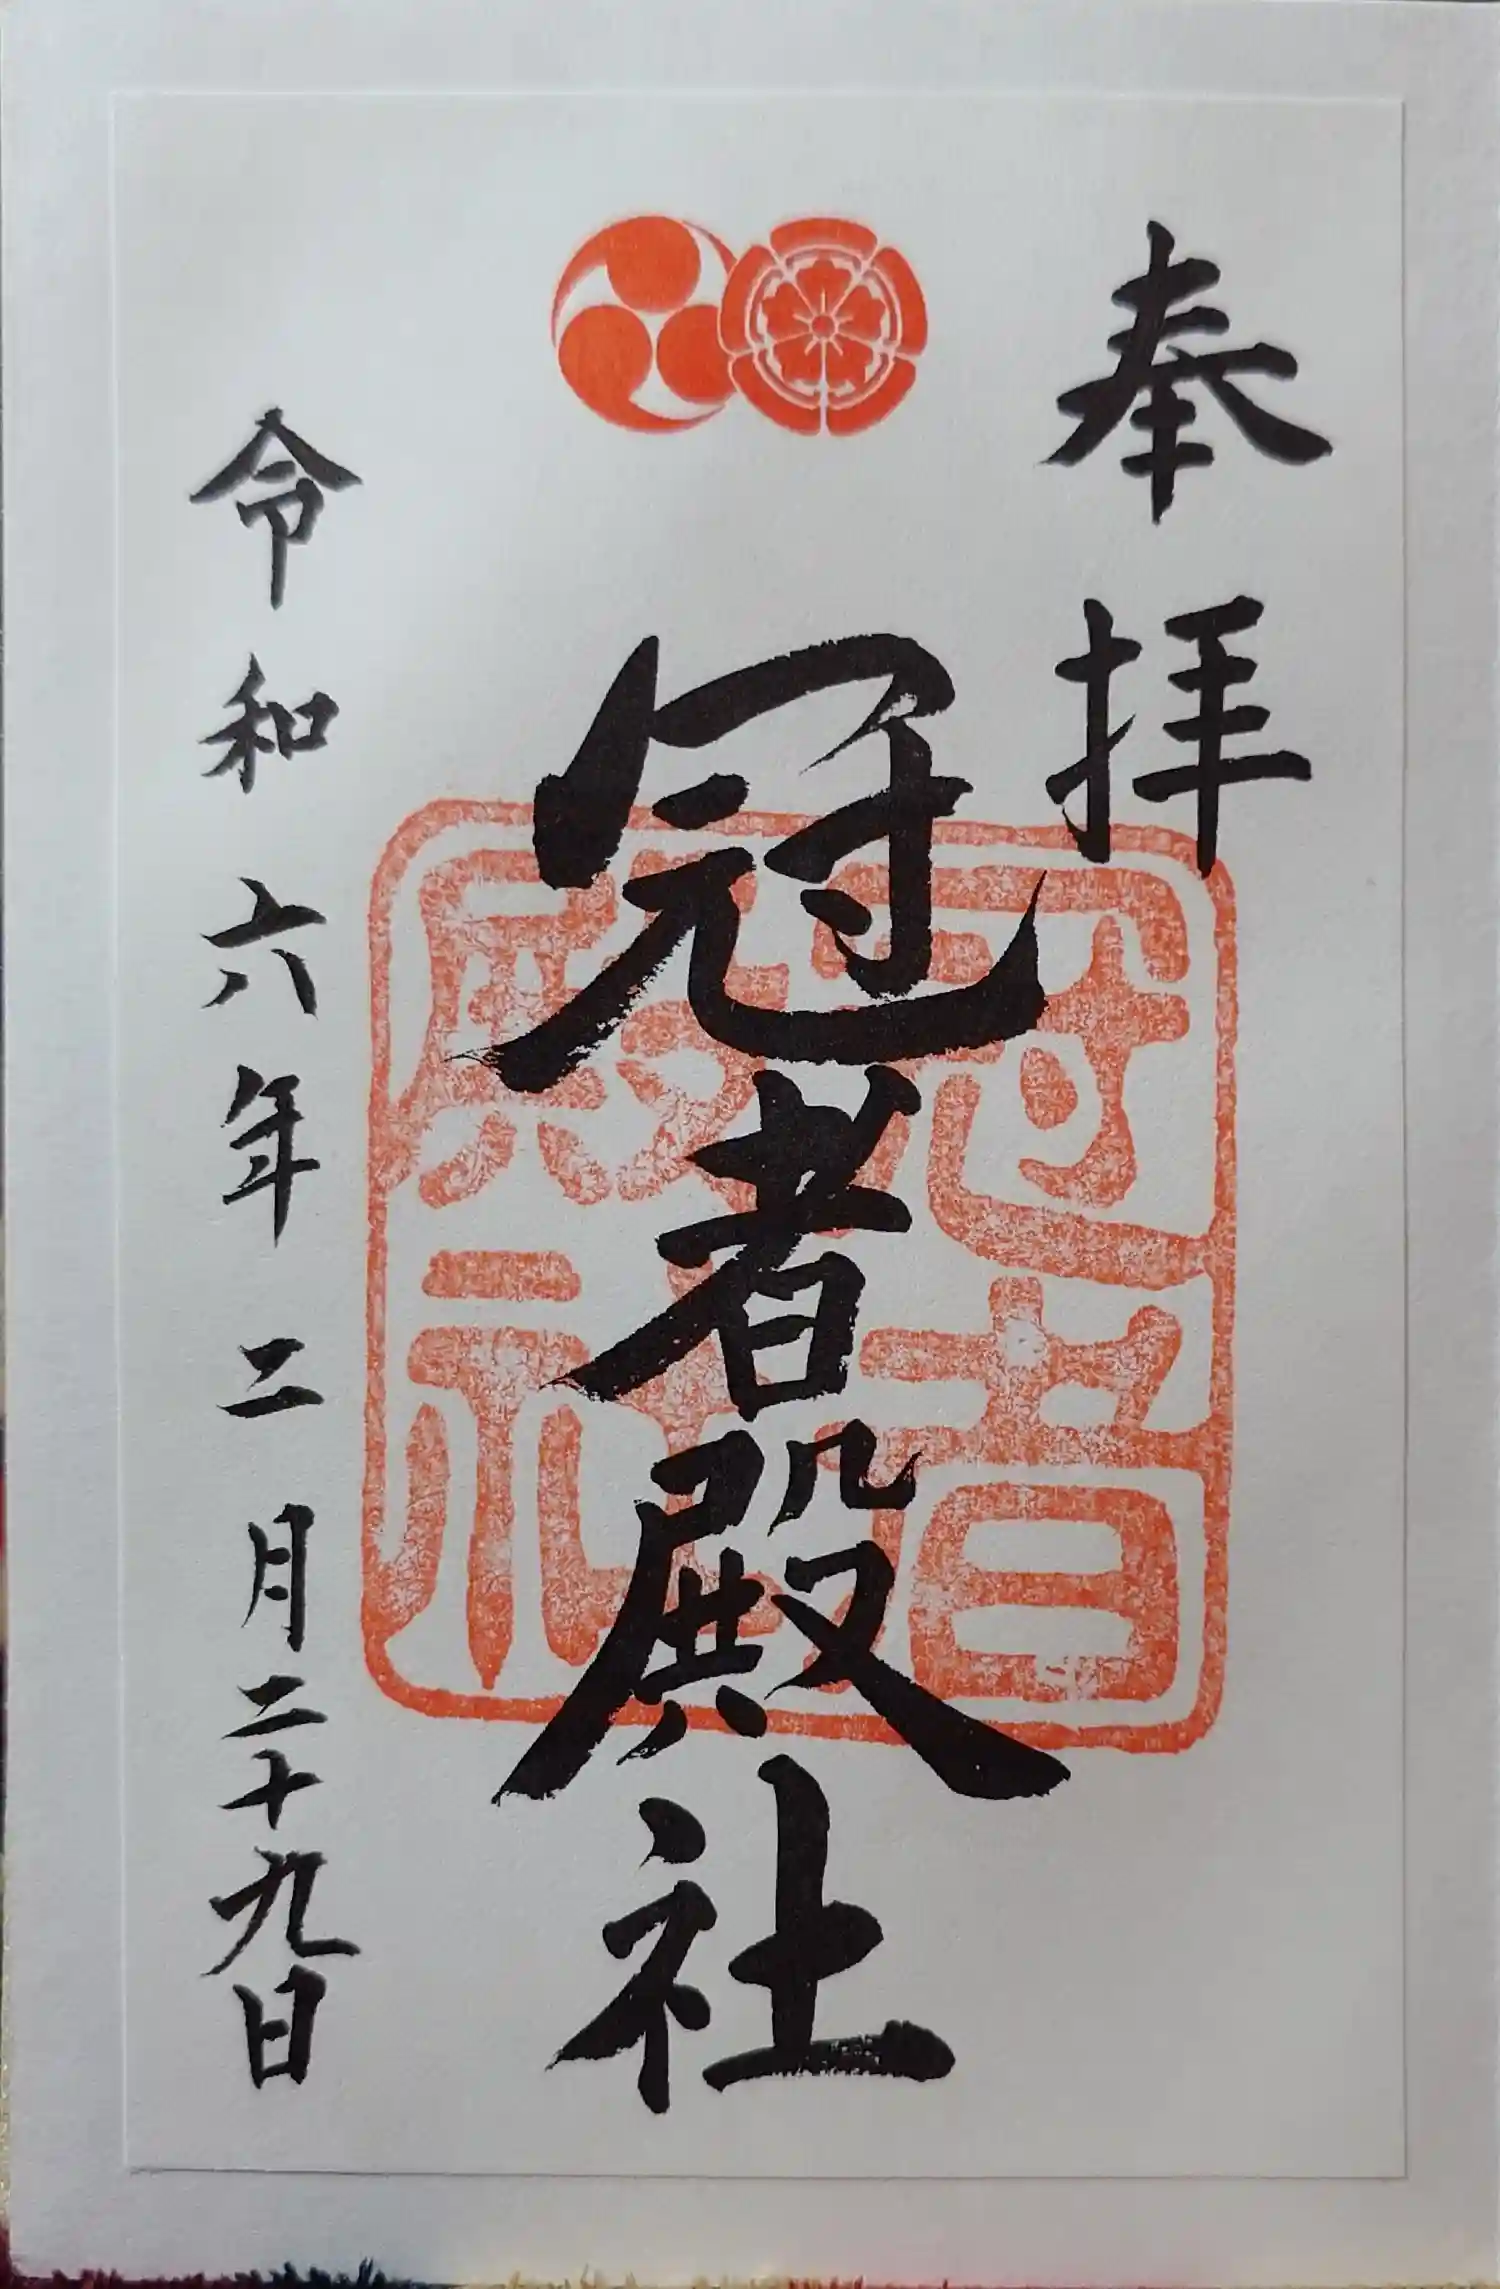 奉拝
冠者殿社
冠者
殿社
令和六年二月二十九日